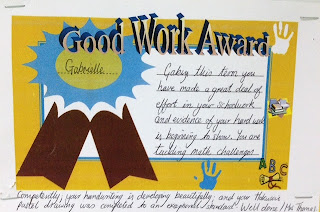 Good Work Award
Gabrielle.....
Gaby, this term you
have made a great deal of
effort in your schoolwork
and evidence of your hard work
is beginning to show. You are
tackling math challenges
competently, your handwriting is developing beautifully, and your
pastel drawing was completed to an exceptional standard. Well done! Mrs Thomas